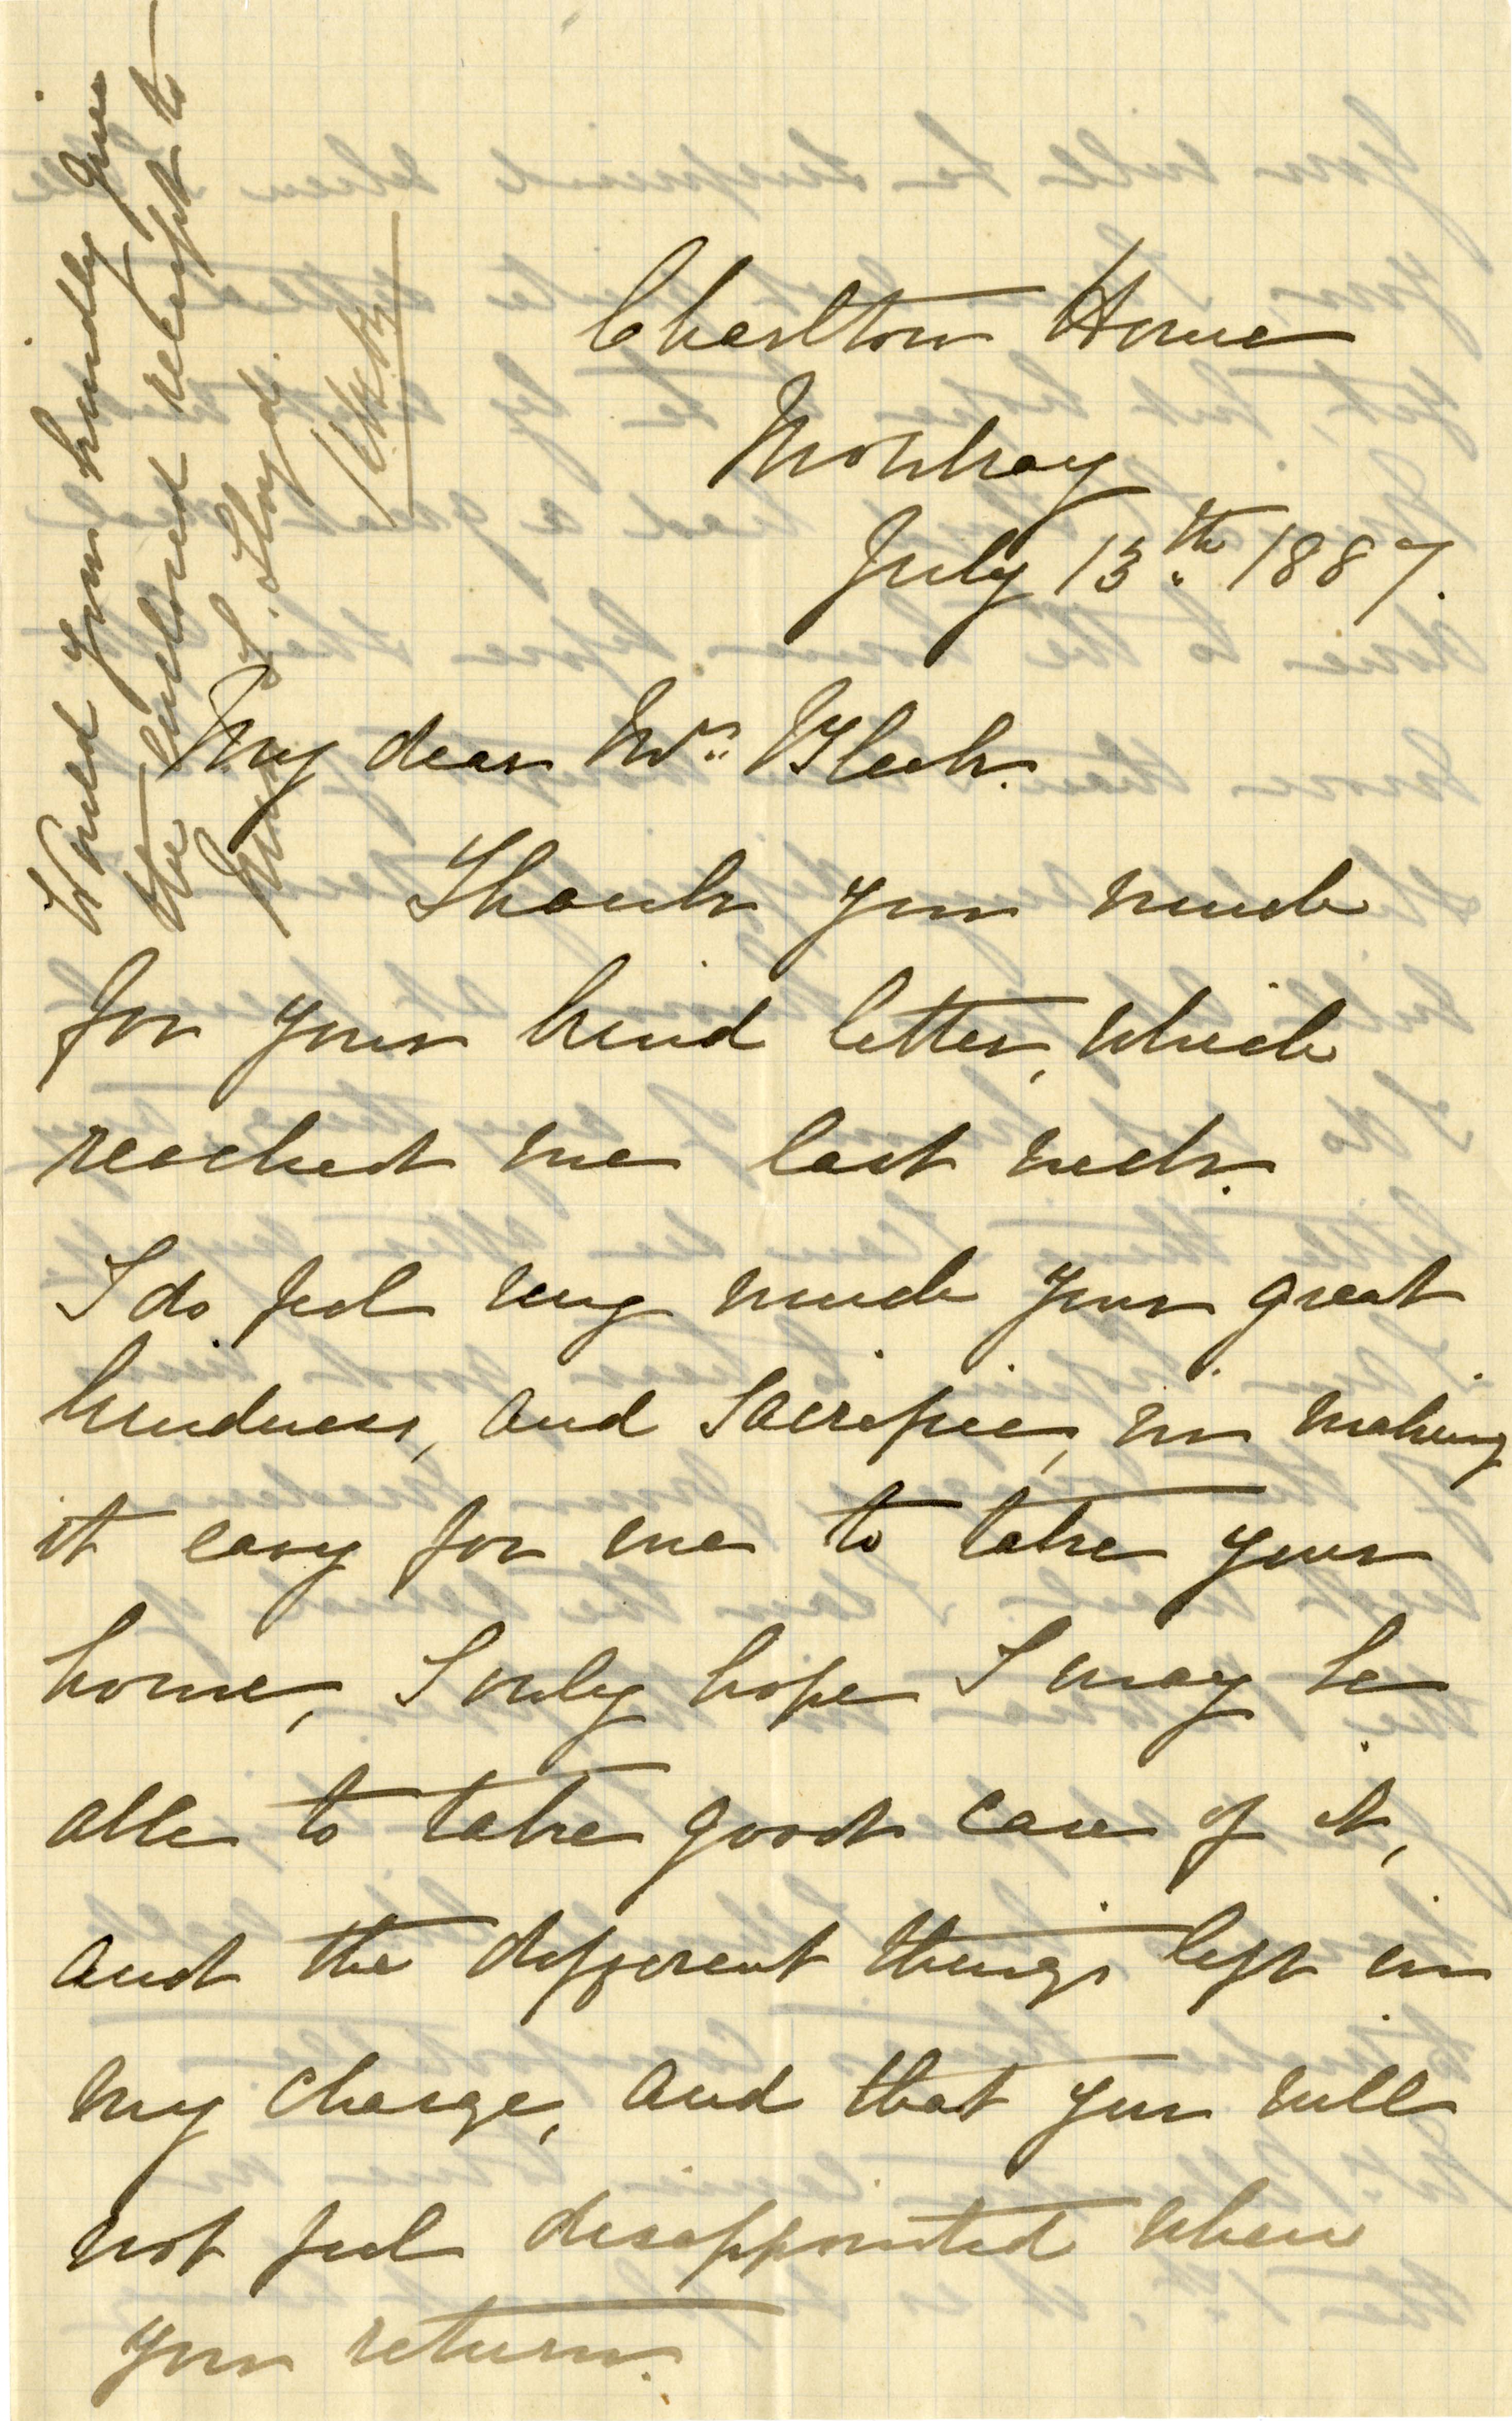 Charlton House
Mowbray
July 13th. 1887.
My dear Mrs. Bleek.
Thank you much
for your kind letter, which
reached me last week.
I do feel very much your great
kindness, and sacrifice, in making
it easy for me to take your
house, I only hope I may be
able to take good care of it,
and the different things left in
my charge, and that you will
not feel disappointed when
you return.
Would you kindly give
the enclosed receipt to
L. Lloyd.